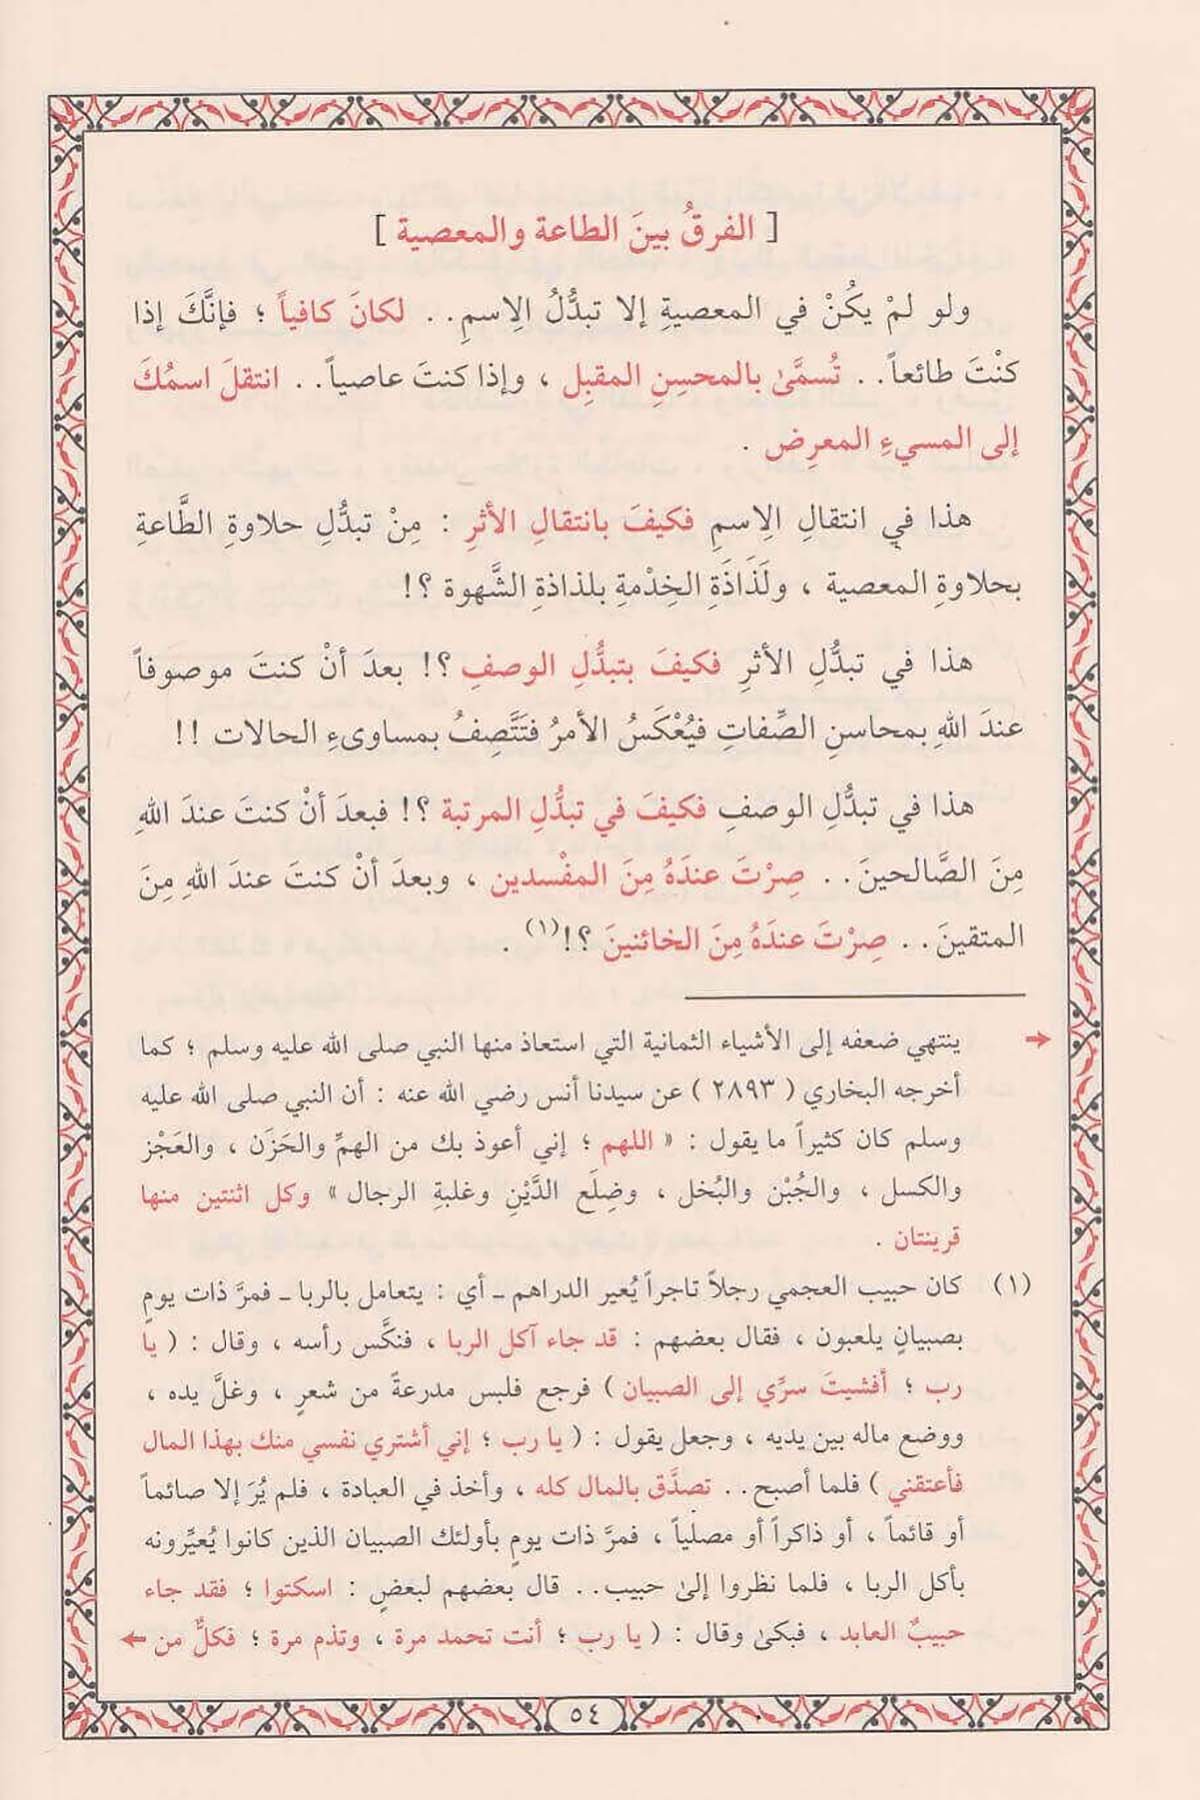 [ الفرقُ بينَ الطاعة والمعصية ]
ولو لمْ يكُنْ في المعصيةِ إلا تبدُّلُ الِاسمِ.. لكانَ كافياً ؛ فإنَّكَ إذا
كنْتَ طائعاً.. تُسمَّىٰ بالمحسِنِ المقبِل ، وإذا كنتَ عاصياً.. انتقلَ اسمُكَ
إلى المسيءِ المعرِض .
هذا في انتقالِ الِاسمِ فكيفَ بانتقالِ الأثرِ : مِنْ تبدُّلِ حلاوةِ الطَّاعةِ
بحلاوةِ المعصية ، ولَذَاذَةِ الخِدْمةِ بلذاذةِ الشَّهوة ؟!
هذا في تبدُّلِ الأثرِ فكيفَ بتبدُّلِ الوصفِ ؟! بعدَ أنْ كنتَ موصوفاً
عندَ اللهِ بمحاسنِ الصِّفاتِ فيُعْكَسُ الأمرُ فتَتَّصِفُ بمساوىءِ الحالات !!
هذا في تبدُّلِ الوصفِ فكيفَ في تبدُّلِ المرتبة ؟! فبعدَ أنْ كنتَ عندَ اللهِ
مِنَ الصَّالحينَ.. صِرْتَ عندَهُ مِنَ المفْسدين ، وبعدَ أنْ كنتَ عندَ اللهِ مِنَ
المتقينَ.. صِرْتَ عندَهُ مِنَ الخائنينَ ؟!(١) .
ينتهي ضعفه إلى الأشياء الثمانية التي استعاذ منها النبي صلى الله عليه وسلم ؛ كما
أخرجه البخاري ( ٢٨٩٣ ) عن سيدنا أنس رضي الله عنه : أن النبي صلى الله عليه
وسلم كان كثيراً ما يقول : « اللهم ؛ إني أعوذ بك من الهمِّ والحَزَن ، والعَجْز
والكسل ، والجُبْن والبُخل ، وضِلَع الدَّيْنِ وغلبةِ الرجال » وكل اثنتين منها
قرينتان .
(١) كان حبيب العجمي رجلاً تاجراً يُعير الدراهم ـ أي : يتعامل بالربا ـ فمرَّ ذات يومٍ
بصبيانٍ يلعبون ، فقال بعضهم : قد جاء آكل الربا ، فنكَّس رأسه ، وقال : ( يا
رب ؛ أفشيتَ سرِّي إلى الصبيان ) فرجع فلبس مدرعةً من شعرٍ ، وغلَّ يده ،
ووضع ماله بين يديه ، وجعل يقول : ( يا رب ؛ إني أشتري نفسي منك بهذا المال
فأعتقني ) فلما أصبح.. تصدَّق بالمال كله ، وأخذ في العبادة ، فلم يُرَ إلا صائماً
أو قائماً ، أو ذاكراً أو مصلياً ، فمرَّ ذات يومٍ بأولئك الصبيان الذين كانوا يُعيِّرونه
بأكل الربا ، فلما نظروا إلىٰ حبيب.. قال بعضهم لبعضٍ : اسكتوا ؛ فقد جاء
حبيبٌ العابد ، فبكىٰ وقال : ( يا رب ؛ أنت تحمد مرة ، وتذم مرة ؛ فكلٌّ من
٥٤